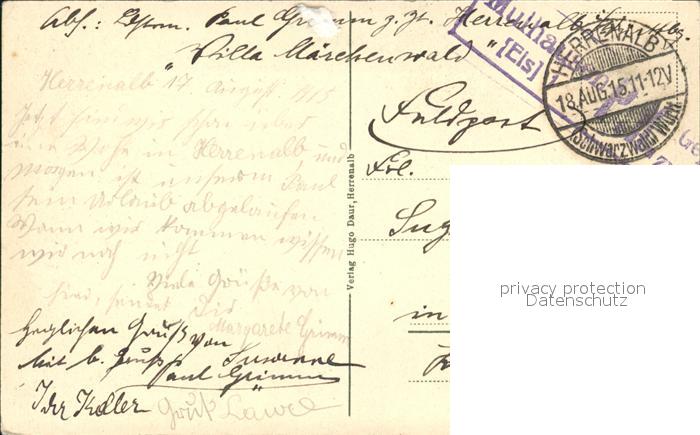 Abs: Paul Grimm z. Zt. Herrenalb
"Villa Märchenwald"
Herrenalb 17. August 1915
Jetzt sind wir schon über
eine Woche in Herrenalb, und
Morgen ist unserem Paul
sein Urlaub abgelaufen
Wann wir kommen wissen
wir noch nicht.
Viele Grüße von
sendet Dir
Margarete Grimm
Herzlichen Gruß von
Susanne
Mit b. Gruß
Paul Grimm
Ida Koller
Gruß
Verlag Hugo Daur, Herrenalb
Mülha
[Els]
HERRENALB
18.AUG.15.11-12V
(Schwarzwald) Württ
Feldpost
Frl.
in
privacy protection
Datenschutz